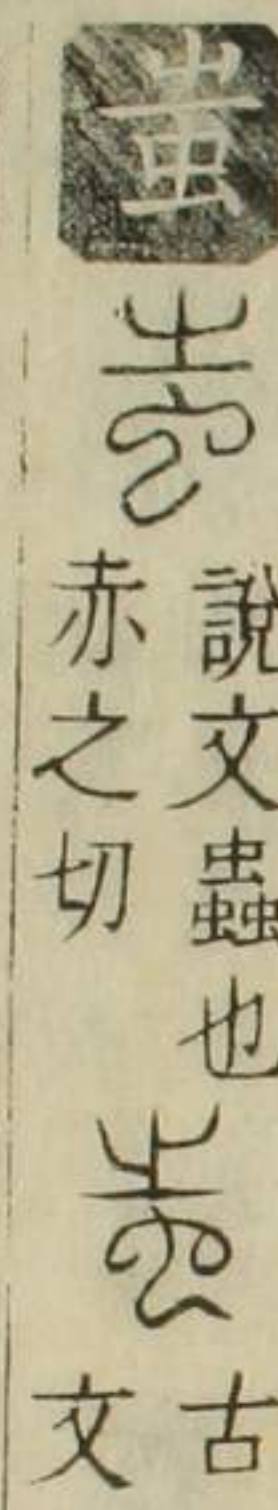 蚩
蚩
說文蟲也
赤之切
蚩
古
文